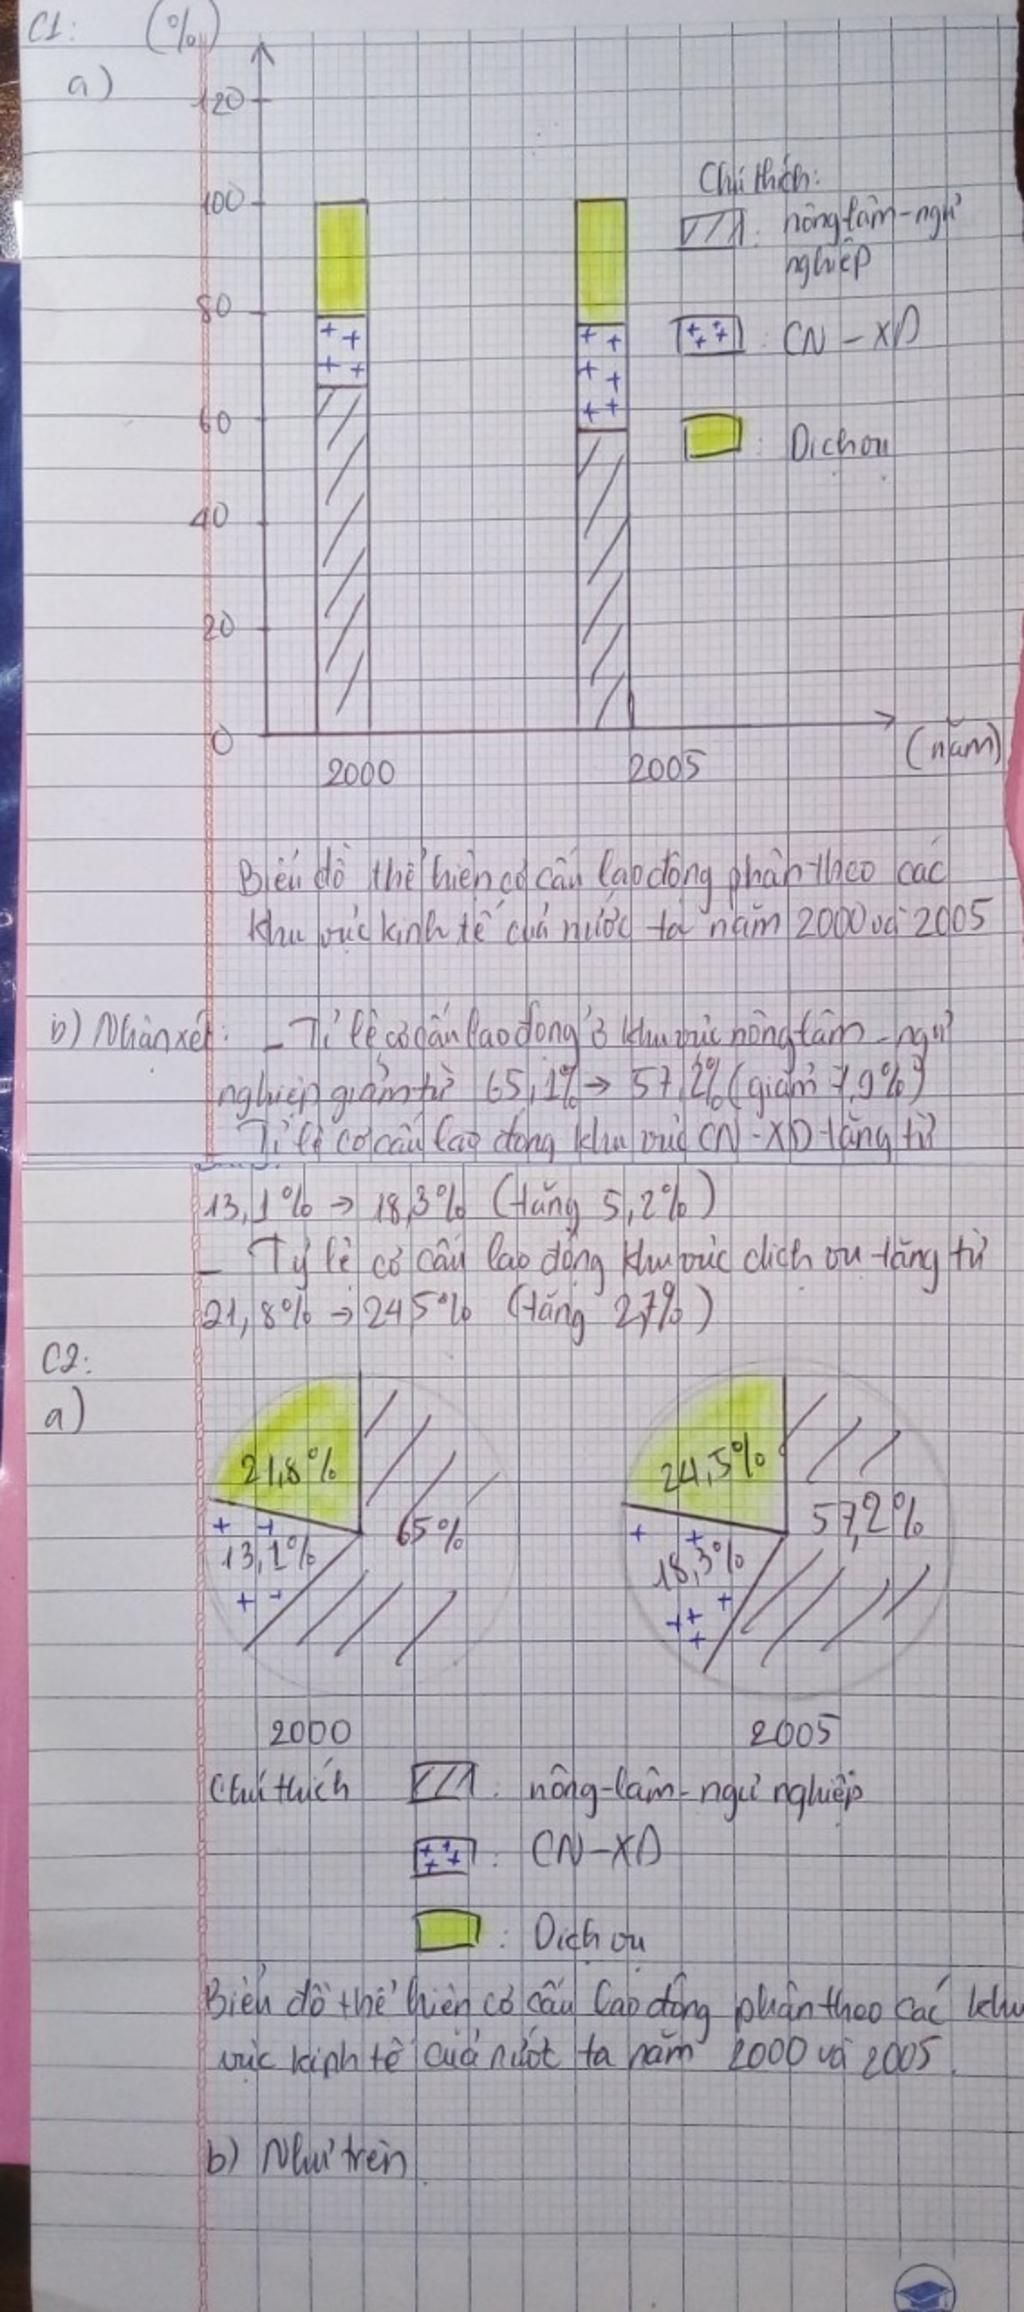 C1: (%)
a)
120
100
80
60
40
20
0
2000 2005 (năm)
Chú thích:
: nông lâm-ngư
nghiệp
: CN-XD
: Dịch vụ
Biểu đồ thể hiện cơ cấu lao động phân theo các
khu vực kinh tế của nước ta năm 2000 và 2005
b) Nhận xét: - Tỉ lệ cơ cấu lao động ở khu vực nông lâm-ngư
nghiệp giảm từ 65,1% → 57,2% (giảm 7,9%)
Tỉ lệ cơ cấu lao động khu vực CN-XD tăng từ
13,1% → 18,3% (tăng 5,2%)
- Tỷ lệ cơ cấu lao động khu vực dịch vụ tăng từ
21,8% → 24,5% (tăng 2,7%)
C2:
a)
21,8% 65% 13,1%
24,5% 57,2% 18,3%
2000 2005
Chú thích : nông-lâm-ngư nghiệp
: CN-XD
: Dịch vụ
Biểu đồ thể hiện cơ cấu lao động phân theo các khu
vực kinh tế của nướt ta năm 2000 và 2005.
b) Như trên